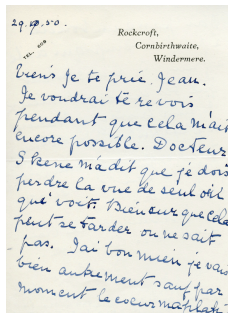 29.9.50.
TEL. 408
Rockcroft,
Cornbirthwaite,
Windermere.
Viens Je te prie Jean.
Je voudrai te revois
pendant que cela m'ait
encore possible. Docteur
Skene m'a dit que je dois
perdre la vue de seul œil
qui voit. Bien sur que cela
peut se tarder on ne sait
pas. J'ai bon mien je vais
bien autrement sauf par
moment le coeur